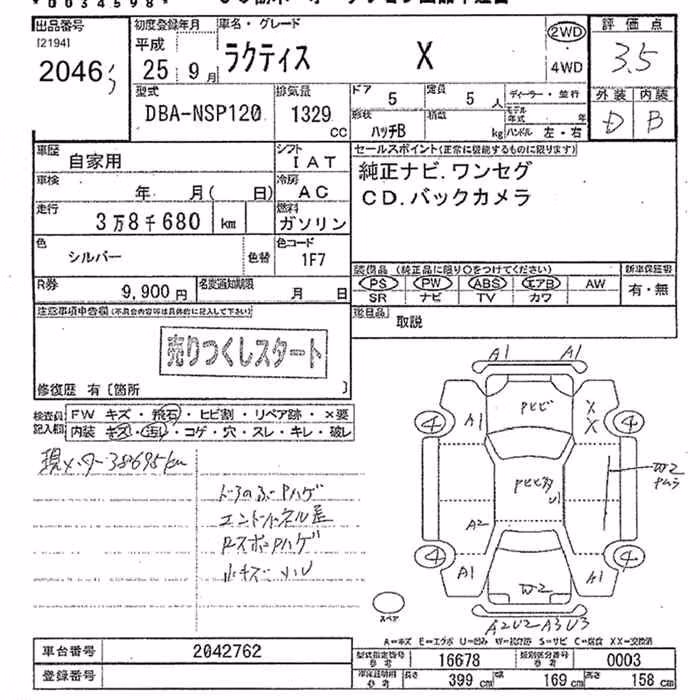 出品番号 初度登録年月 車名・グレード 評価点
[2194] 平成 2WD
2046 25年9月 ラクティス X 4WD 3.5
型式 排気量 ドア 5 定員 5人 ディーラー・並行 外装 内装
DBA-NSP120 1329cc 形状 ハッチB 積載 kg モデル年式 年 ハンドル 左・右 D B
車歴 自家用 シフト IAT セールスポイント(正常に機能するものに限ります)
車検 年 月( 日) 冷房 AC 純正ナビ.ワンセグ
走行 3万8千680 km 燃料 ガソリン CD.バックカメラ
色 シルバー 色替 色コード 1F7
装備品 (純正品に限り○をつけてください) 新車保証書
R券 9,900円 名変通知期限 月 日 PS PW ABS エアB AW 有・無
SR ナビ TV カワ
注意事項申告欄(不具合内容等は具体的に記入して下さい) 取説
売りつくしスタート
修復歴 有〔箇所 〕
検査員記入欄 FW キズ・飛石・ヒビ割・リペア跡・×要
内装 キズ・汚れ・コゲ・穴・スレ・キレ・破レ
現メーター38695km
A1 A1
PビビA1 X X
4 4
Pビビ多 U1
W2
Pムラ
A2
4 4
A1 A1
W2
A2U2 A3U3
スペア
A=キズ E=エクボ U=凹み W=補修跡 S=サビ C=腐食 XX=交換済
車台番号 2042762 型式指定番号 参考 16678 類別区分番号 参考 0003
登録番号 車庫証明用 参考 長さ 399 cm 幅 169 cm 高さ 158 cm